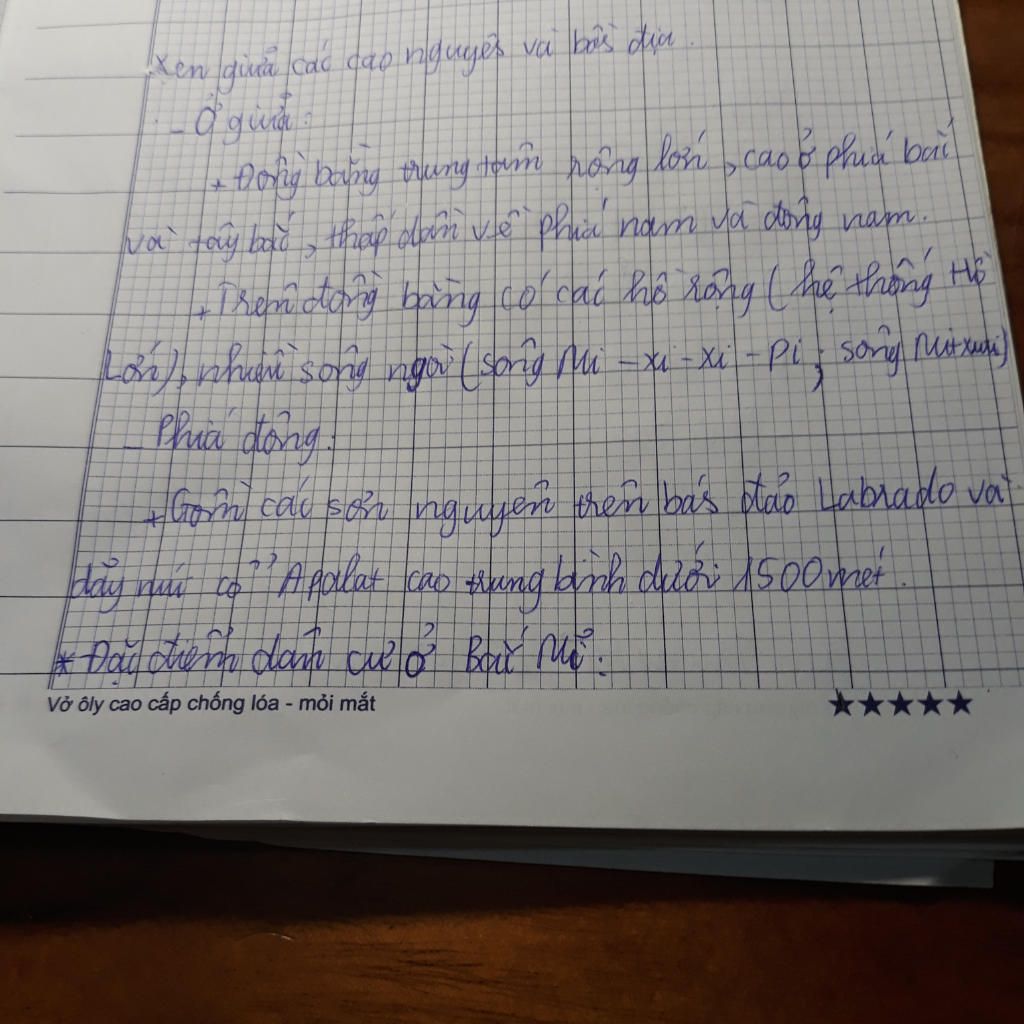 xen giữa các cao nguyên và bồn địa.
- Ở giữa:
+ Đồng bằng trung tâm rộng lớn, cao ở phía bắc
và tây bắc, thấp dần về phía nam và đông nam.
+ Trên đồng bằng có các hồ rộng (hệ thống Hồ
Lớn), nhiều sông ngòi (sông Mi - xi - xi - pi; sông Mit-xuari)
- Phía đông:
+ Gồm các sơn nguyên trên bán đảo Labrado và
dãy núi cổ Apalat cao trung bình dưới 1500 mét.
* Đặc điểm dân cư ở Bắc Mĩ:
Vở ôly cao cấp chống lóa - mỏi mắt
★★★★★